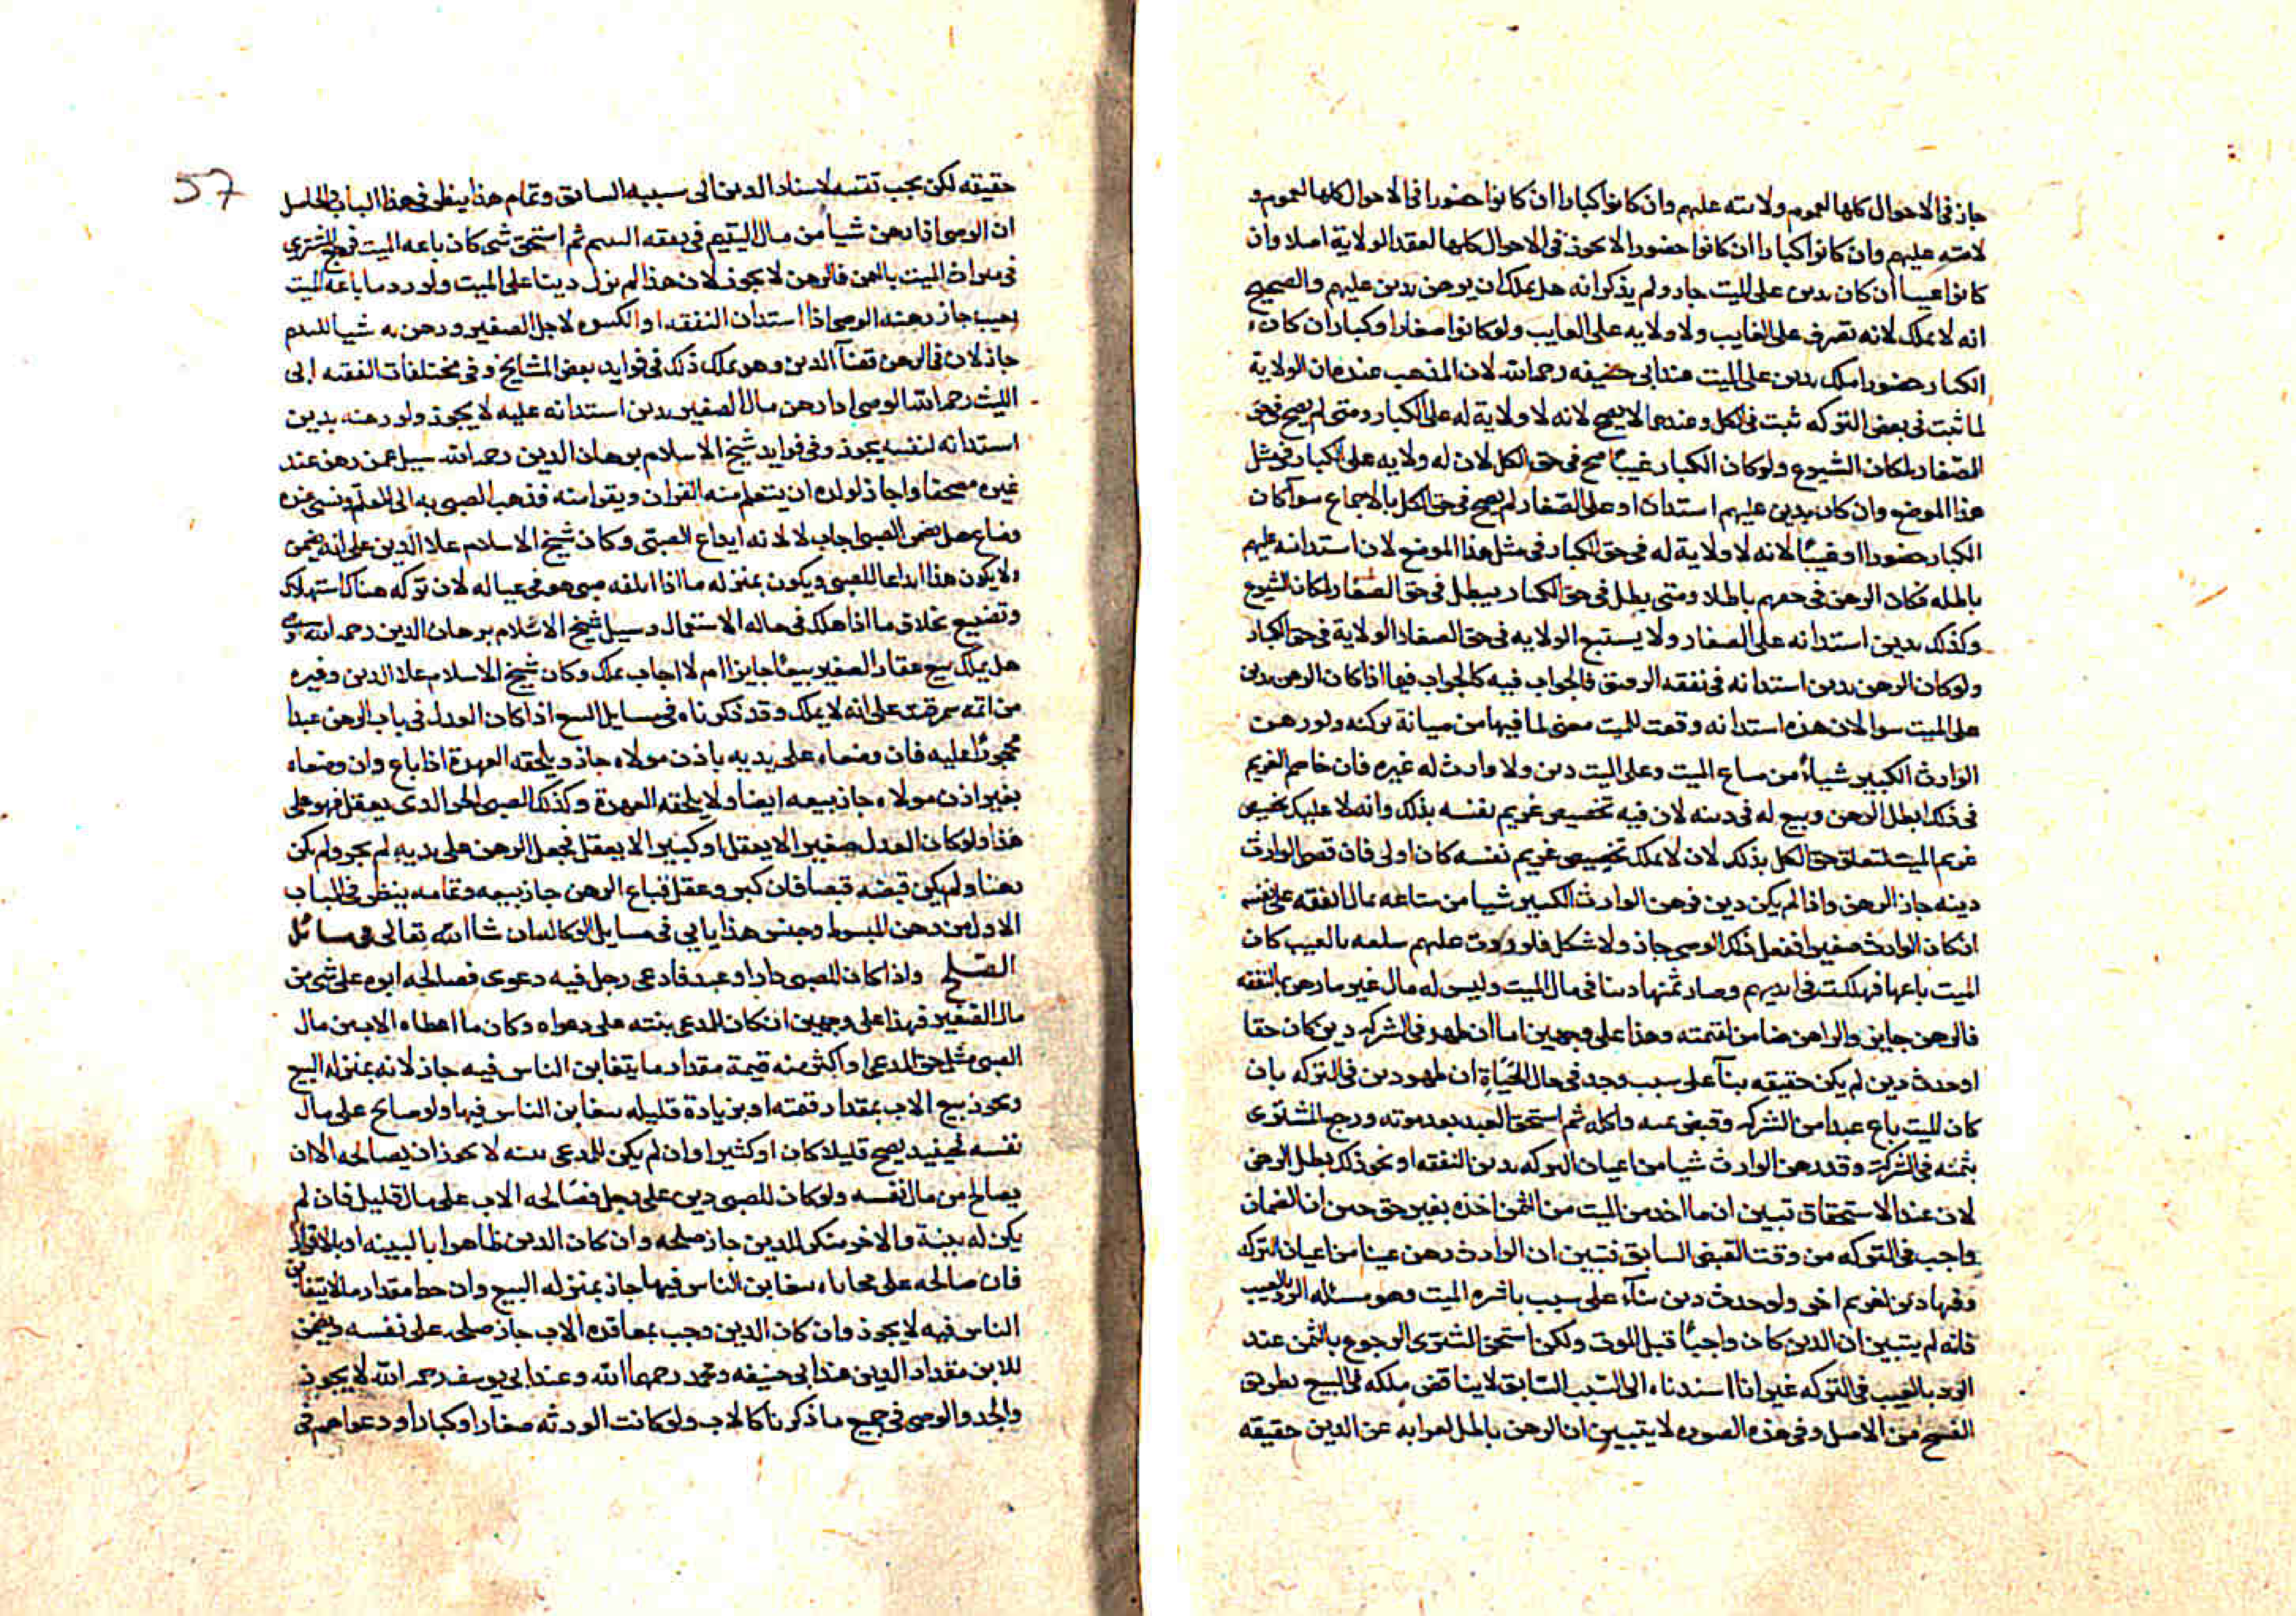 جاز فى الاحوال كلها لعموم ولايته عليهم وان كانوا كبارا ان كانوا حضورا فى الاحوال كلها لعموم و
لايته عليهم وان كانوا كبارا ان كانوا حضورا لا يجوز فى الاحوال كلها لفقد الولاية اصلا وان
كانوا غيبا ان كان بدين على الميت جاز ولم يذكر انه هل يملك ان يرهن بدين عليهم والصحيح
انه لا يملك لانه تصرف على الغايب ولا ولايه على الغايب ولو كانوا صغارا وكبارا ان كان
الكبار حضورا ملك بدين على الميت عند ابى حنيفه رحمه الله لان المذهب عنده ان الولاية
لما ثبت فى بعض التركه ثبت فى الكل وعندهما لا يصح لانه لا ولاية له على الكبار ومتى لم يصح فى حق
الصغار لمكان الشيوع ولو كان الكبار غيبا صح فى حق الكل لان له ولايه على الكبار فى مثل
هذا الموضع وان كان بدين عليهم استدان او على الصغار لم يصح فى حق الكل بالاجماع سوآ كان
الكبار حضورا او غيبا لانه لا ولاية له فى حق الكبار فى مثل هذا الموضع لان استدانه عليهم
باطله فكان الرهن فى حقهم باطلا ومتى بطل فى حق الكبار يبطل فى حق الصغار لمكان الشيوع
وكذلك بدين استدانه على الصغار ولا يستتبع الولايه فى حق الصغار الولاية فى حق الكبار
ولو كان الرهن بدين استدانه فى نفقه الرقيق فالجواب فيه كالجواب فيما اذا كان الرهن بدين
على الميت سوا لان هذه استدانه وقعت للميت معنى لما فيها من صيانة تركته ولو رهن
الوارث الكبير شياء من متاع الميت وعلى الميت دين ولا وارث له غيره فان خاصم الغريم
فى ذلك ابطل الرهن وبيع له فى دينه لان فيه تخصيص غريم نفسه بذلك وانه لا يملك تخصيص
غريم الميت لتعلق حق الكل بذلك لان لا يملك تخصيص غريم نفسه كان اولى فان قضى الوارث
دينه جاز الرهن واذا لم يكن دين فرهن الوارث الكبير شيا من متاعه بمال انفقه على نفسه
ان كان الوارث صغيرا ففعل ذلك الوصى جاز ولا شكل فلو ردت عليهم سلعه بالعيب كان
الميت باعها فهلكت فى ايديهم وصار ثمنها دينا فى مال الميت وليس له مال غير ما رهن بالنفقه
فالرهن جايز والراهن ضامن لقيمته وهذا على وجهين اما ان ظهر فى التركه دين كان حقا
او حدث دين لم يكن حقيقه بنآ على سبب وجد فى حال الحياة ان ظهر دين فى التركه بان
كان الميت باع عبدا من التركه وقبض ثمنه واكله ثم استحق العبد بعد موته ورجع المشترى
بثمنه فى التركة وقد رهن الوارث شيا من اعيان التركه بدين النفقه او نحو ذلك بطل الرهن
لان عند الاستحقاق تبين ان ما اخذ من الميت من الثمن اخذه بغير حق حين ان الضمان
واجب فى التركه من وقت القبض السابق فتبين ان الوارث رهن عينا من اعيان التركه
وفيها دين لغريم اخر ولو حدث دين بنآء على سبب باشره الميت وهو مسئله الرد بالعيب
فانه لم يتبين ان الدين كان واجبا قبل الموت ولكن استحق المشترى الرجوع بالثمن عند
الرد بالعيب فى التركه غير انا اسندناه الى السبب السابق لا يناقض ملكه فى البيع بطريق
الفسخ من الاصل وفى هذه الصوره لا يتبين ان الرهن باطل لعرايه عن الدين حقيقه
57
حقيقه لكن يجب تقسه لاسناد الدين الى سببه السابق وتمام هذا ينظر فى هذا الباب فى الحاصل
ان الوصى اذا رهن شيا من مال اليتيم فى نفقه اليتيم ثم استحق شى كان باعه الميت فرجع المشترى
فى ميراث الميت بالثمن فالرهن لا يجوز لان هذا لم يزل دينا على الميت ولو رد ما باعه الميت
بعيب جاز رهنه الوصى اذا استدان النفقه او الكسوه لاجل الصغير ورهن به شيا لليتيم
جاز لان فى الرهن قضآ الدين وهو يملك ذلك فى فوايد بعض المشايخ وفى مختلفات الفقيه ابى
الليث رحمه الله الوصى اذا رهن مال الصغير بدين استدانه عليه لا يجوز ولو رهنه بدين
استدانه لنفسه يجوز وفى فوايد شيخ الاسلام برهان الدين رحمه الله سيل عمن رهن عند
غيره مصحفا واجاز لولده ان يتعلم منه القران ويقرا منه فذهب الصبى به الى المعلم ونسى عنده
وضاع هل يضمن الصبى اجاب لا لانه ايداع الصبى وكان شيخ الاسلام علا الدين على انه يضمن
ولا يكون هذا ايداعا للصبى ويكون بمنزله ما اذا اتلفه صبى هو فى عياله لان تركه هناك استهلاك
وتضييع بخلاف ما اذا هلك فى حاله الاستعمال وسيل شيخ الاسلام برهان الدين رحمه الله
هل يملك بيع عقار الصغير بيعا جايزا ام لا اجاب يملك وكان شيخ الاسلام علا الدين وغيره
من ائمه سمرقند على انه لا يملك وقد ذكرناه فى مسايل البيع اذا كان العدل فى باب الرهن عبدا
محجورا عليه فان وضعاه على يديه باذن مولاه جاز ويلحقه العهدة اذا باع وان وضعاه
بغير اذن مولاه جاز بيعه ايضا ولا يلحقه العهدة وكذلك الصبى الحر الذى يعقل فهو على
هذا ولو كان العدل صغيرا لا يعقل او كبيرا لا يعقل فجعل الرهن على يديه لم يجز ولم يكن
رهنا ولم يكن قبضه قبضا فان كبر وعقل فباع الرهن جاز بيعه وتمامه ينظر فى الباب
الاول من رهن المبسوط وجنس هذا ياتى فى مسايل الوكاله ان شا الله تعالى فى مسائل
الصلح واذا كان للصبى دارا او عبد فادعى رجل فيه دعوى فصالحه ابوه على شى من
مال الصغير فهذا على وجهين ان كان للمدعى بينته على دعواه وكان ما اعطاه الاب من مال
الصبى مثل حق المدعى او اكثر منه قيمة مقدار ما يتغابن الناس فيه جاز لانه بمنزله البيع
ويجوز بيع الاب بمقدار قيمته او بزيادة قليله يتغابن الناس فيها ولو صالح على مال
نفسه فحينيذ يصح قليلا كان او كثيرا وان لم يكن للمدعى بينه لا يجوز ان يصالحه الا ان
يصالح من مال نفسه ولو كان للصبى دين على رجل فصالحه الاب على مال قليل فان لم
يكن له بينة والاخر منكر للدين جاز صلحه وان كان الدين ظاهرا بالبينه او بالاقرار
فان صالحه على محاباه يتغابن الناس فيها جاز بمنزله البيع وان حط مقدار ما لا يتغابن
الناس فيه لا يجوز وان كان الدين وجب بمعاقده الاب جاز صلحه على نفسه ويضمن
للابن مقدار الدين عند ابى حنيفه ومحمد رحمهما الله وعند ابى يوسف رحمه الله لا يجوز
والجد والوصى فى جميع ما ذكرنا كالاب ولو كانت الورثه صغارا وكبارا ودعواهم فى